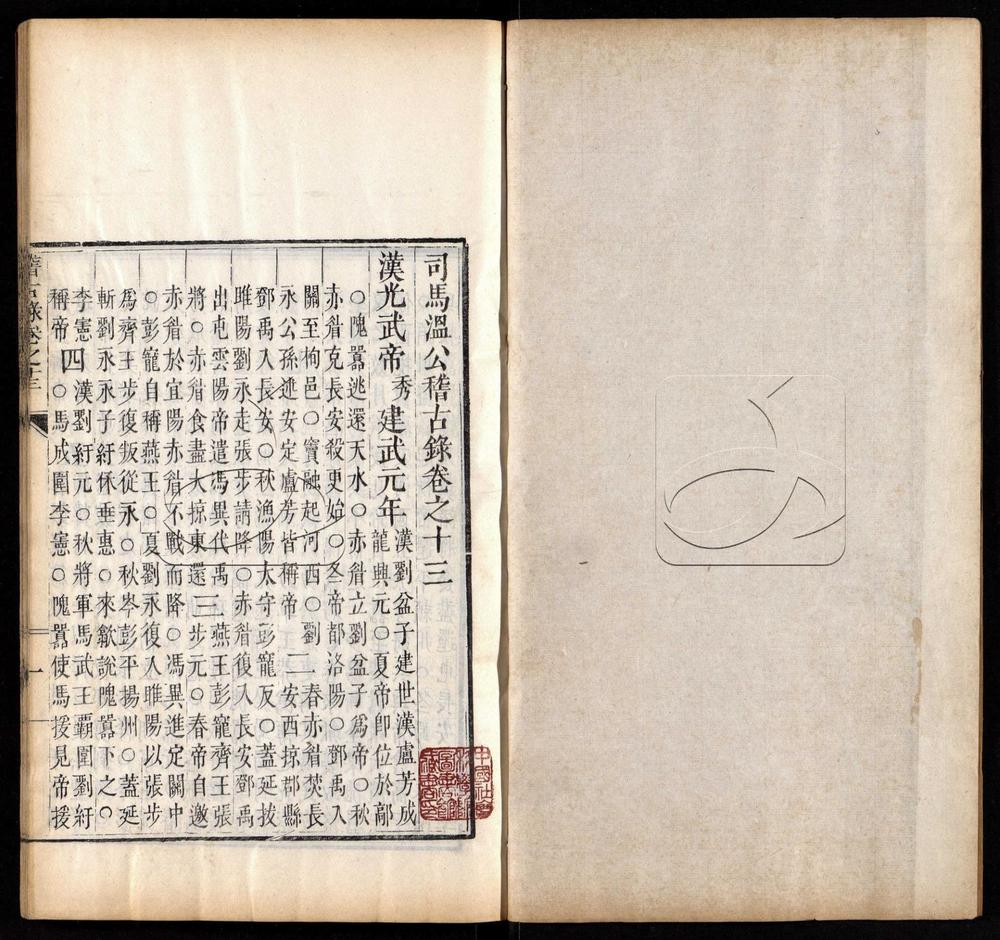 司馬溫公稽古錄卷之十三
漢光武帝秀建武元年漢劉盆子建世漢盧芳成
龍興元○夏帝卽位於鄗
○隗囂逃還天水○赤眉立劉盆子爲帝○秋
赤眉克長安殺更始○冬帝都洛陽○鄧禹入
關至栒邑○竇融起河西○劉二春赤眉焚長
永公孫述安定盧芳皆稱帝安西掠郡縣
鄧禹入長安○秋漁陽太守彭寵反○蓋延拔
雎陽劉永走張步請降○赤眉復入長安鄧禹
出屯雲陽帝遣馮異代禹三燕王彭寵齊王張
將○赤眉食盡大掠東還步元○春帝自邀
赤眉於宜陽赤眉不戰而降○馮異進定關中
○彭寵自稱燕王○夏劉永復入雎陽以張步
爲齊王步復叛從永○秋岑彭平揚州○蓋延
斬劉永永子紆保垂惠○來歙說隗囂下之○
李憲四漢劉紆元○秋將軍馬武王霸圍劉紆
稱帝○馬成圍李憲○隗囂使馬援見帝援
稽古錄卷之十三
一
中國社會